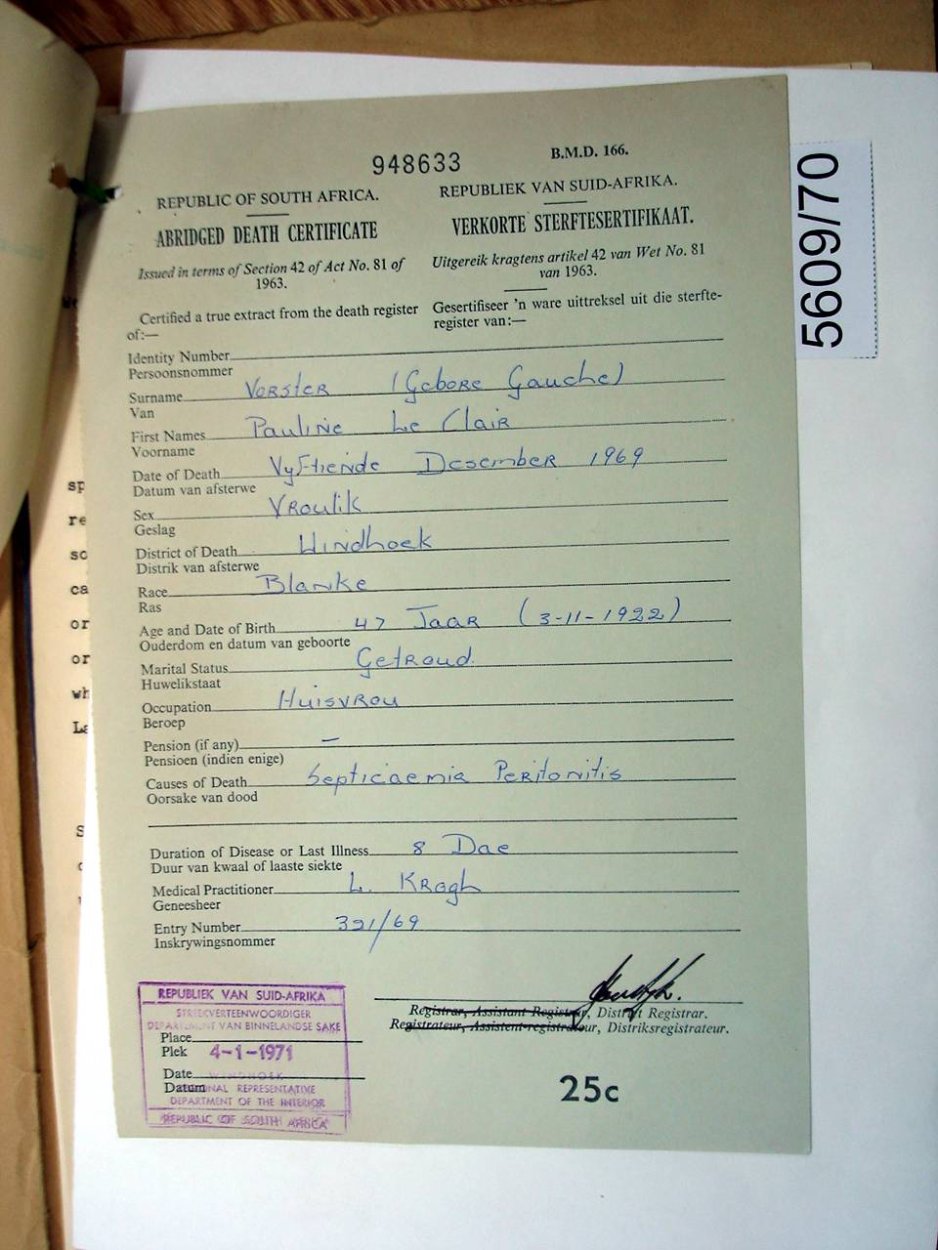 948633
B.M.D. 166.
5609/70
REPUBLIC OF SOUTH AFRICA.
REPUBLIEK VAN SUID-AFRIKA.
ABRIDGED DEATH CERTIFICATE
VERKORTE STERFTESERTIFIKAAT.
Issued in terms of Section 42 of Act No. 81 of
1963.
Uitgereik kragtens artikel 42 van Wet No. 81
van 1963.
Certified a true extract from the death register
of:—
Gesertifiseer 'n ware uittreksel uit die sterfte-
register van:—
Identity Number
Persoonsnommer
Surname Vorster (Gebore Gauche)
Van
First Names Pauline Le Clair
Voorname
Date of Death Vyftiende Desember 1969
Datum van afsterwe
Sex Vroulik
Geslag
District of Death Windhoek
Distrik van afsterwe
Race Blanke
Ras
Age and Date of Birth 47 Jaar (3-11-1922)
Ouderdom en datum van geboorte
Marital Status Getroud
Huwelikstaat
Occupation Huisvrou
Beroep
Pension (if any) –
Pensioen (indien enige)
Causes of Death Septicaemia Peritonitis
Oorsake van dood
Duration of Disease or Last Illness 8 Dae
Duur van kwaal of laaste siekte
Medical Practitioner L. Krogh
Geneesheer
Entry Number 321/69
Inskrywingsnommer
Registrar, Assistant Registrar, District Registrar.
Registrateur, Assistent-registrateur, Distriksregistrateur.
REPUBLIEK VAN SUID-AFRIKA
STREEKVERTEENWOORDIGER
DEPARTEMENT VAN BINNELANDSE SAKE
Place
Plek 4-1-1971
Date WINDHOEK
Datum REGIONAL REPRESENTATIVE
DEPARTMENT OF THE INTERIOR
REPUBLIC OF SOUTH AFRICA
25c
sp
re
so
ca
or
or
wh
La